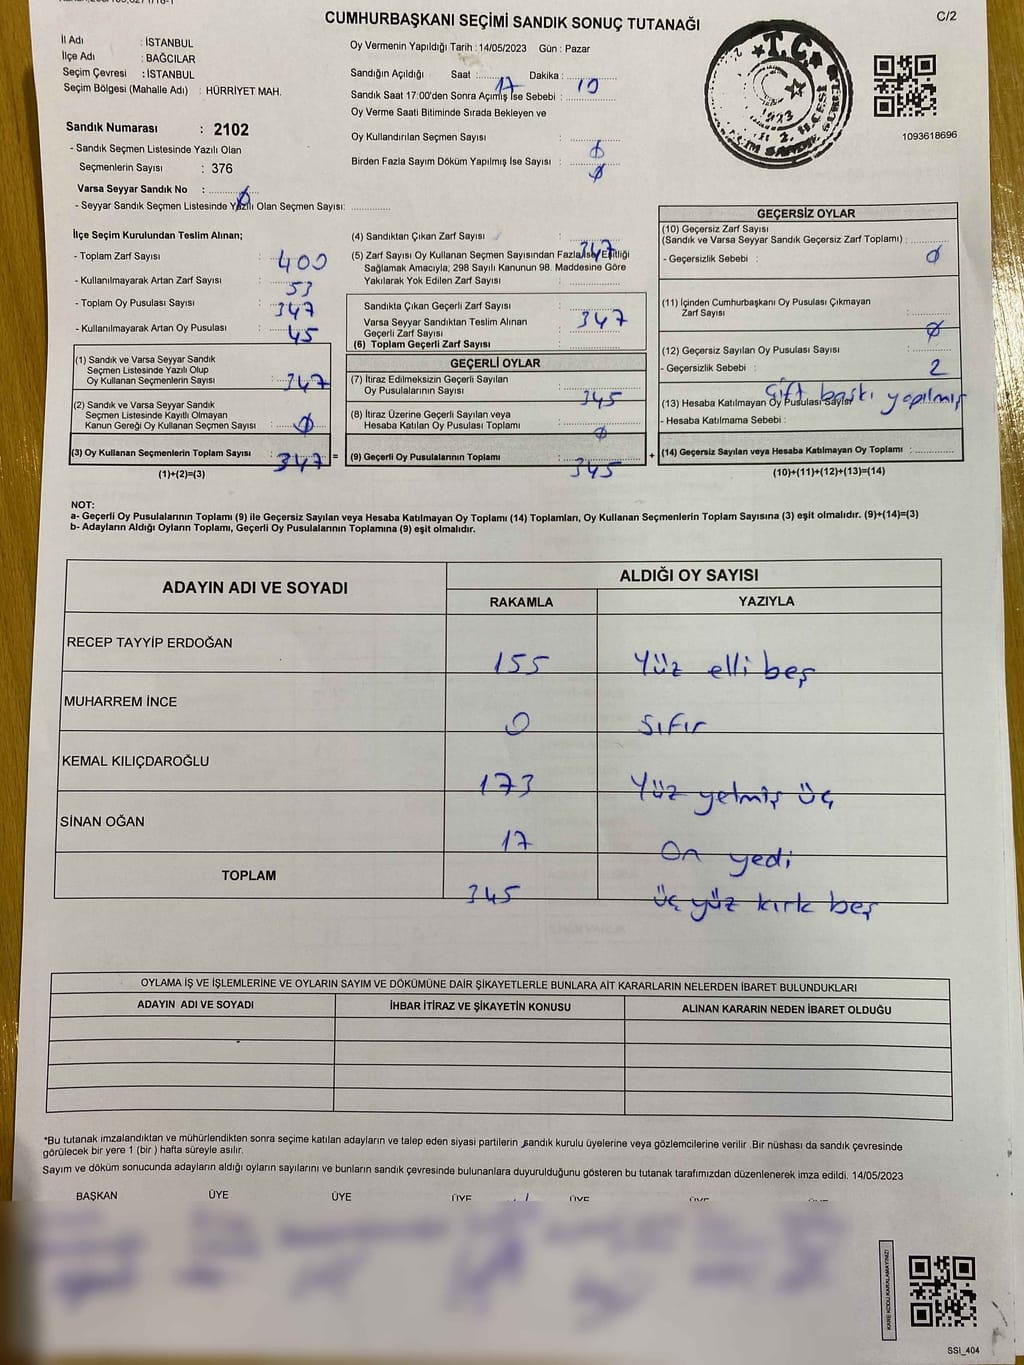 C/2
CUMHURBAŞKANI SEÇİMİ SANDIK SONUÇ TUTANAĞI
İl Adı : İSTANBUL
İlçe Adı : BAĞCILAR
Seçim Çevresi : İSTANBUL
Seçim Bölgesi (Mahalle Adı) : HÜRRİYET MAH.
Sandık Numarası : 2102
- Sandık Seçmen Listesinde Yazılı Olan
Seçmenlerin Sayısı : 376
Varsa Seyyar Sandık No : Ø
- Seyyar Sandık Seçmen Listesinde Yazılı Olan Seçmen Sayısı:
Oy Vermenin Yapıldığı Tarih : 14/05/2023 Gün : Pazar
Sandığın Açıldığı Saat : 17 Dakika : 10
Sandık Saat 17:00'den Sonra Açılmış İse Sebebi :
Oy Verme Saati Bitiminde Sırada Bekleyen ve
Oy Kullandırılan Seçmen Sayısı : Ø
Birden Fazla Sayım Döküm Yapılmış İse Sayısı : Ø
T.C.
1093618696
İlçe Seçim Kurulundan Teslim Alınan;
- Toplam Zarf Sayısı : 400
- Kullanılmayarak Artan Zarf Sayısı : 53
- Toplam Oy Pusulası Sayısı : 347
- Kullanılmayarak Artan Oy Pusulası : 45
(1) Sandık ve Varsa Seyyar Sandık
Seçmen Listesinde Yazılı Olup
Oy Kullanan Seçmenlerin Sayısı : 347
(2) Sandık ve Varsa Seyyar Sandık
Seçmen Listesinde Kayıtlı Olmayan
Kanun Gereği Oy Kullanan Seçmen Sayısı : Ø
(3) Oy Kullanan Seçmenlerin Toplam Sayısı : 347 =
(1)+(2)=(3)
(4) Sandıktan Çıkan Zarf Sayısı : 347
(5) Zarf Sayısı Oy Kullanan Seçmen Sayısından Fazla İse, Eşitliği
Sağlamak Amacıyla; 298 Sayılı Kanunun 98. Maddesine Göre
Yakılarak Yok Edilen Zarf Sayısı :
Sandıkta Çıkan Geçerli Zarf Sayısı :
Varsa Seyyar Sandıktan Teslim Alınan 347
Geçerli Zarf Sayısı
(6) Toplam Geçerli Zarf Sayısı :
GEÇERLİ OYLAR
(7) İtiraz Edilmeksizin Geçerli Sayılan
Oy Pusulalarının Sayısı : 345
(8) İtiraz Üzerine Geçerli Sayılan veya
Hesaba Katılan Oy Pusulası Toplamı : Ø
(9) Geçerli Oy Pusulalarının Toplamı : 345 +
GEÇERSİZ OYLAR
(10) Geçersiz Zarf Sayısı
(Sandık ve Varsa Seyyar Sandık Geçersiz Zarf Toplamı) :
- Geçersizlik Sebebi : Ø
(11) İçinden Cumhurbaşkanı Oy Pusulası Çıkmayan
Zarf Sayısı : Ø
(12) Geçersiz Sayılan Oy Pusulası Sayısı :
- Geçersizlik Sebebi : 2
Çift baskı yapılmış
(13) Hesaba Katılmayan Oy Pusulası Sayısı
- Hesaba Katılmama Sebebi :
(14) Geçersiz Sayılan veya Hesaba Katılmayan Oy Toplamı :
(10)+(11)+(12)+(13)=(14)
NOT:
a- Geçerli Oy Pusulalarının Toplamı (9) ile Geçersiz Sayılan veya Hesaba Katılmayan Oy Toplamı (14) Toplamları, Oy Kullanan Seçmenlerin Toplam Sayısına (3) eşit olmalıdır. (9)+(14)=(3)
b- Adayların Aldığı Oyların Toplamı, Geçerli Oy Pusulalarının Toplamına (9) eşit olmalıdır.
ADAYIN ADI VE SOYADI
ALDIĞI OY SAYISI
RAKAMLA YAZIYLA
RECEP TAYYİP ERDOĞAN 155 Yüz elli beş
MUHARREM İNCE 0 Sıfır
KEMAL KILIÇDAROĞLU 173 Yüz yetmiş üç
SİNAN OĞAN 17 On yedi
TOPLAM 345 üç yüz kırk beş
OYLAMA İŞ VE İŞLEMLERİNE VE OYLARIN SAYIM VE DÖKÜMÜNE DAİR ŞİKAYETLERLE BUNLARA AİT KARARLARIN NELERDEN İBARET BULUNDUKLARI
ADAYIN ADI VE SOYADI İHBAR İTİRAZ VE ŞİKAYETİN KONUSU ALINAN KARARIN NEDEN İBARET OLDUĞU
*Bu tutanak imzalandıktan ve mühürlendikten sonra seçime katılan adayların ve talep eden siyasi partilerin ,sandık kurulu üyelerine veya gözlemcilerine verilir .Bir nüshası da sandık çevresinde
görülecek bir yere 1 (bir ) hafta süreyle asılır.
Sayım ve döküm sonucunda adayların aldığı oyların sayılarını ve bunların sandık çevresinde bulunanlara duyurulduğunu gösteren bu tutanak tarafımızdan düzenlenerek imza edildi. 14/05/2023
BAŞKAN ÜYE ÜYE ÜYE ÜYE ÜYE ÜYE
KARE KODU KARALAMAYINIZ!
SSI_404